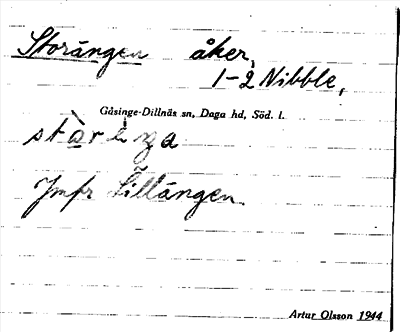 Storängen åker,
1-2 Nibble,
Gåsinge-Dillnäs sn, Daga hd, Söd. l.
Jmfr Lillängen.
Artur Olsson 1944